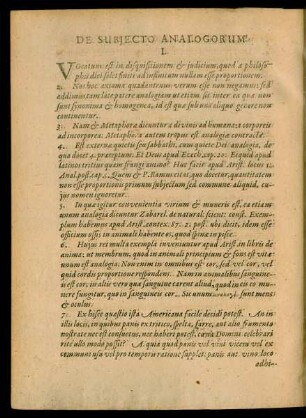 DE SUBJECTO ANALOGORUM.
I.
VOcatum est in disquisitionem & judicium, quod a philoso-
phis dici solet finiti ad infinitum nullam esse proportionem.
2. Nos hoc axioma quadantenus verum esse non negamus; sed
addimus tam late patere analogum ut etiam sit inter ea quæ non
sunt sinonima & homogenea, id est quæ sub uno aliquo genere non
continentur.
3. Nam & Metaphora dicuntur a divinis ad humana, & corporeis
ad incorporea. Metaphoræ autem tropus est analogia contracta.
4. Est externa quies seu sabbathi, cum quiete Dei analogia, do-
quo docet 4. præceptum. Et Deus apud Ezech. cap. 20. Et quid apud
latinos critica quam frangi videat? Huc facit apud Arist. locus 2.
Anal. post. cap. Quem & P. Ramus citat, quo docetur, quantitatem
non esse proportionis primum subjectum sed commune aliquid, cu-
jus nomen ignoretur.
5. In qua igitur convenientia virium & muneris est, ea etiam
unum analogia dicuntur Zabarel. de natural. scient: const. Exem-
plum habemus apud Arist. context. 87. 2. post. ubi dicit, idem esse
officium ossis in animali habente os, quod spinæ in pisce.
6. Hujus rei multa exempla inveniuntur apud Arist. in libris de
anima: ut membrum, quod in animali principium & fons est vitæ
unum est analogia. Nec enim in omnibus est cor, sed vel cor, vel
quid cordis proportione respondens. Nam in animalibus sanguine-
is est cor, in aliis vero quæ sanguine carent aliud, quod in eis eo mu-
nere fungitur, quo in sanguineis cor. Sic unum sunt mens
& oculus.
7. Ex hisce quæstio ista Americana facile decidi potest. An in
illis locis, in quibus panis ex tritico, spelta, farre, aut alio frumento
nostrate nec est confectus, nec haberi potest, cœna Domini celebrari
rite ullo modo possit? A. quia quod panis vel vini vicem vel ex
communi usu vel pro temporis ratione supplet: panis aut vini loco
adhi-